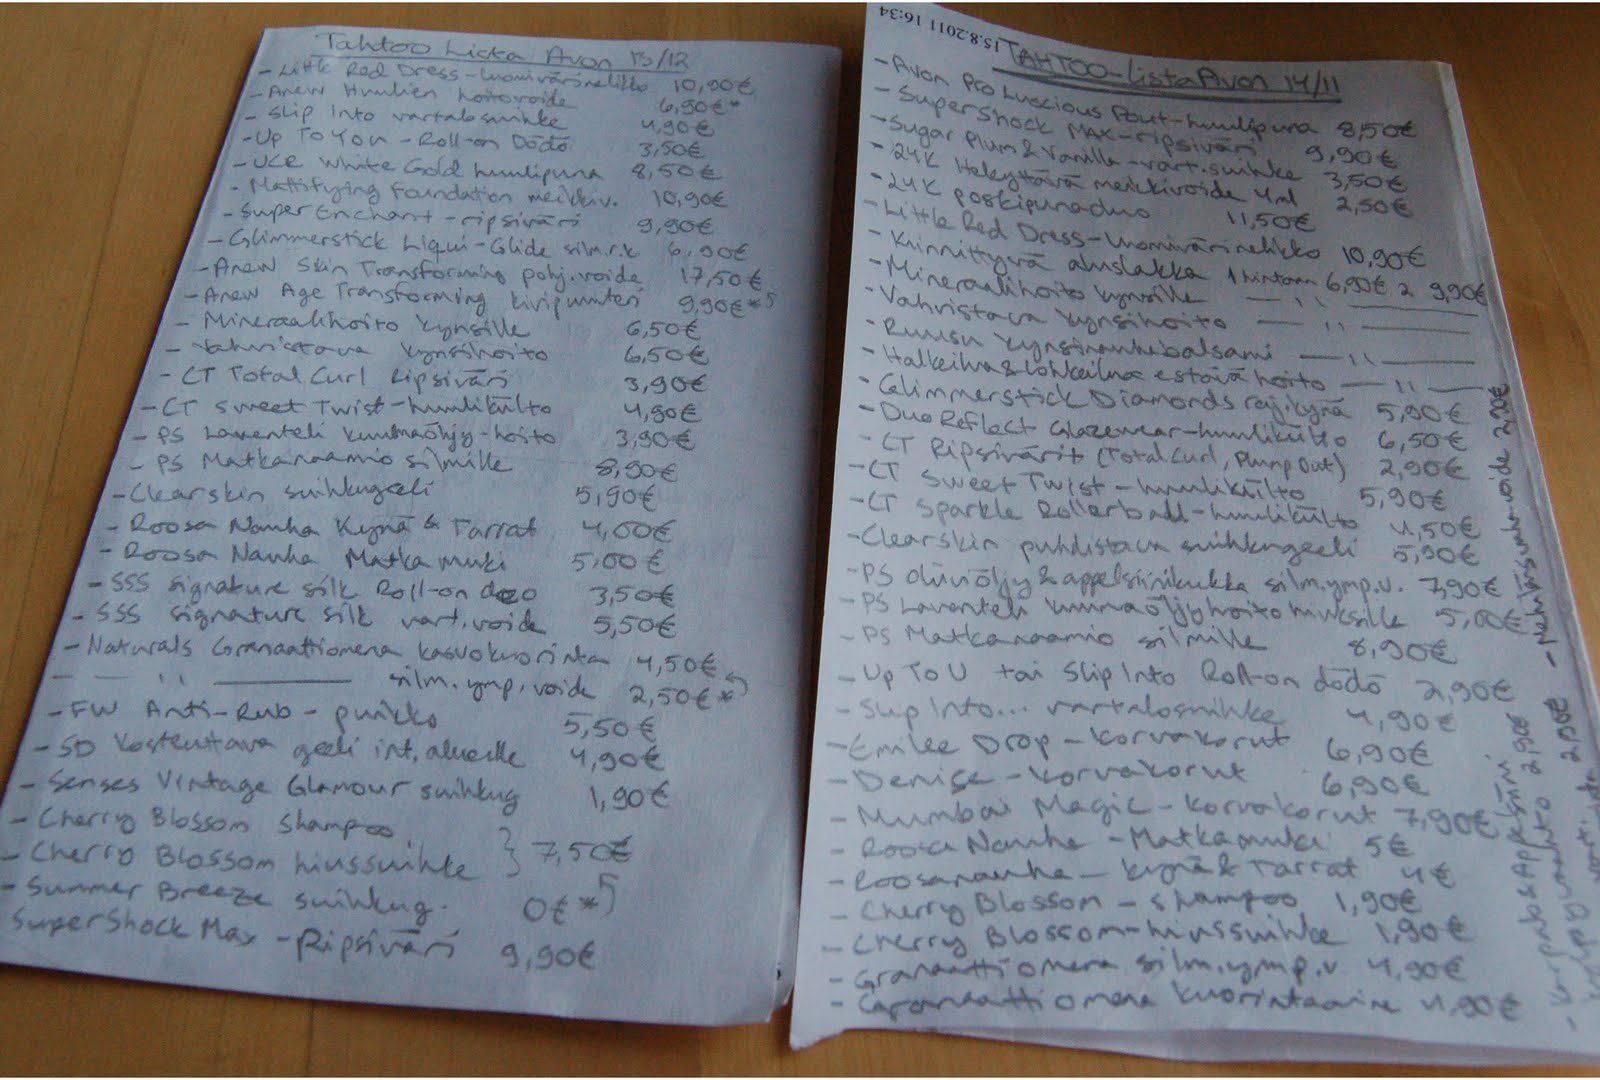 Tahtoo Lista Avon 13/12
- Little Red Dress-luomivärinelikko 10,90€
- Anew Huulien hoitovoide 6,90€*
- Slip Into vartalosuihke 4,90€
- Up To You - Roll-on Dödö 3,50€
- UCR White Gold huulipuna 8,50€
- Mattifying Foundation meikkiv. 10,90€
- SuperEnchant - ripsiväri 9,90€
- Glimmerstick Liqui-Glide silm.r.k 6,90€
- Anew Skin Transforming pohj.voide 17,50€
- Anew Age Transforming kivipuuteri 9,90€*
- Mineraalihoito kynsille 6,50€
- Vahvistava kynsihoito 6,50€
- CT Total Curl Ripsiväri 3,90€
- CT Sweet Twist-huulikiilto 4,90€
- PS Laventeli kuumaöljy-hoito 3,90€
- PS Matkanaamio silmille 8,90€
- Clearskin suihkugeeli 5,90€
- Roosa Nauha Kynä & Tarrat 4,00€
- Roosa Nauha Matkamuki 5,00€
- SSS signature silk Roll-on deo 3,50€
- SSS signature silk vart.voide 5,50€
- Naturals Granaattiomena kasvokuorinta 4,50€
- — '' — silm.ymp.voide 2,50€*
- FW Anti-Rub - puikko 5,50€
- SD Kosteuttava geeli int.alueelle 4,90€
- Senses Vintage Glamour suihkug 1,90€
- Cherry Blossom shampoo
- Cherry Blossom hiussuihke } 7,50€
- Summer Breeze suihkug. 0€*
SuperShock Max - Ripsiväri 9,90€
15.8.2011 16:34
TAHTOO-lista Avon 14/11
- Avon Pro Luscious Pout-huulipuna 8,50€
- SuperShock MAX-ripsiväri 9,90€
- Sugar Plum & Vanilla - vart.suihke 3,50€
- 24K Helkytävä meikkivoide 4ml 2,50€
- 24K poskipunaduo 11,50€
- Little Red Dress-luomivärinelikko 10,90€
- Kiinnittyvä aluslakka 1 hintaan 6,90€ 2 9,90€
- Mineraalihoito kynsille — '' —
- Vahvistava kynsihoito — '' —
- Ruusu kynsinauhabalsami — '' —
- Halkeilua & lohkeilua estävä hoito — '' —
- Glimmerstick Diamonds raj.kynä 5,90€
- Duo Reflect Glazewear-huulikiilto 6,50€
- CT Ripsivärit (Total Curl, Plump Out) 2,90€
- CT Sweet Twist - huulikiilto 5,90€
- CT Sparkle Rollerball-huulikiilto 4,50€
- Clearskin puhdistava suihkugeeli 5,90€
- PS oliiviöljy & appelsiinikukka silm.ymp.v. 7,90€
- PS Laventeli kuumaöljyhoito hiuksille 5,00€
- PS Matkanaamio silmille 8,90€
- Up To U tai Slip Into Roll-on dödö 2,90€
- Slip Into... vartalosuihke 4,90€
- Emilee Drop - korvakorut 6,90€
- Denise - korvakorut 6,90€
- Mumbai Magic - korvakorut 7,90€
- Roosa Nauha - Matkamuki 5€
- Roosanauha - kynä & Tarrat 4€
- Cherry Blossom - shampoo 1,90€
- Cherry Blossom-hiussuihke 1,90€
- Granaattiomena silm.ymp.v. 4,90€
- Granaattiomena kuorintaaine 4,90€
- Mehiläisvaha.voide 2,20€
- Karpalo & Appelsiini